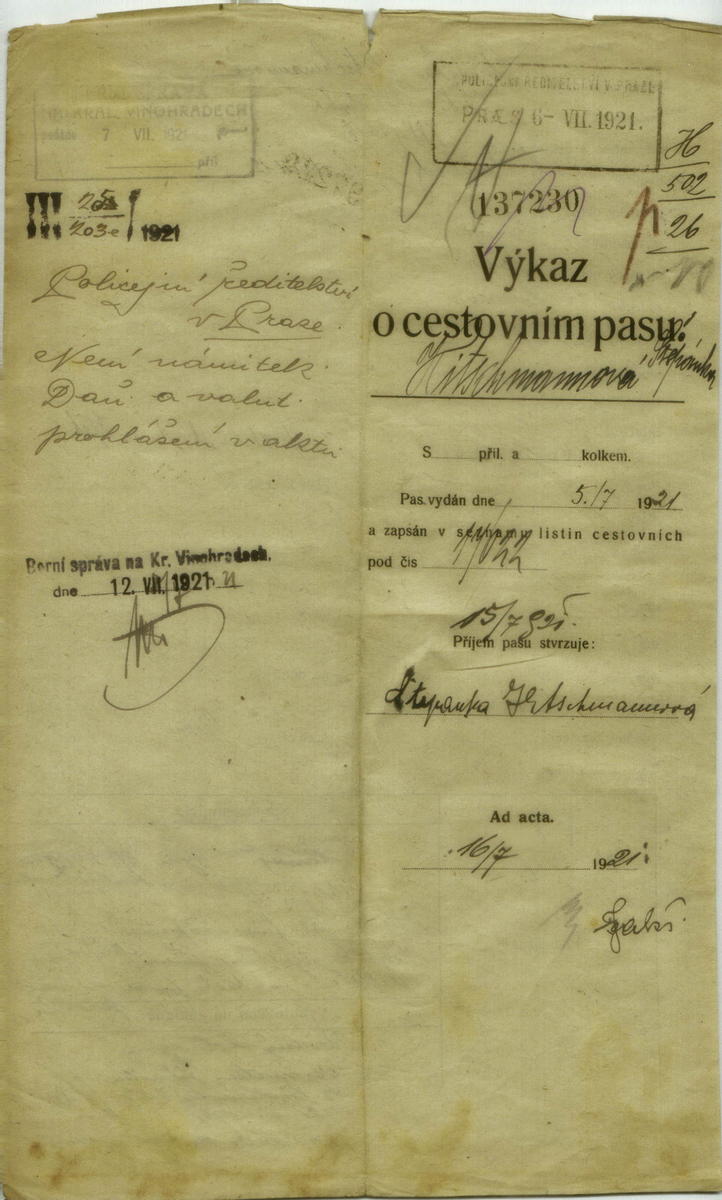 NA KRÁL. VINOHRADECH
7 VII. 1921
příl
III 203-e 1921
Policejní ředitelství
v Praze.
Není námitek.
Daň. a valut.
prohlášení v aktu
Berní správa na Kr. Vinohradech.
dne 12. VII. 1921
POLICEJNÍ ŘEDITELSTVÍ V PRAZE
PRAES 6- VII. 1921.
H
502
26
137230
Výkaz
o cestovním pasu.
Hitschmannová Štěpánka
S příl. a kolkem.
Pas vydán dne 5./7 1921
a zapsán v seznamu listin cestovních
pod čís
15/7 921.
Příjem pasu stvrzuje:
Štěpanka Hitschmannová
Ad acta.
16/7 1921.